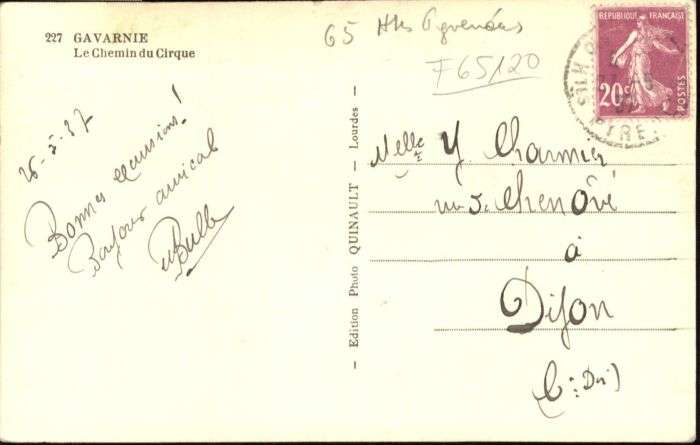 227 GAVARNIE
Le Chemin du Cirque
65 Htes Pyrénées
F65120
RÉPUBLIQUE FRANÇAISE
20c
POSTES
26-5-37
Bonnes excursions!
Bonjour amical
Edition Photo QUINAULT — Lourdes —
Melle Y. Charmier
Chenôve
à
Dijon
(C: Dor)